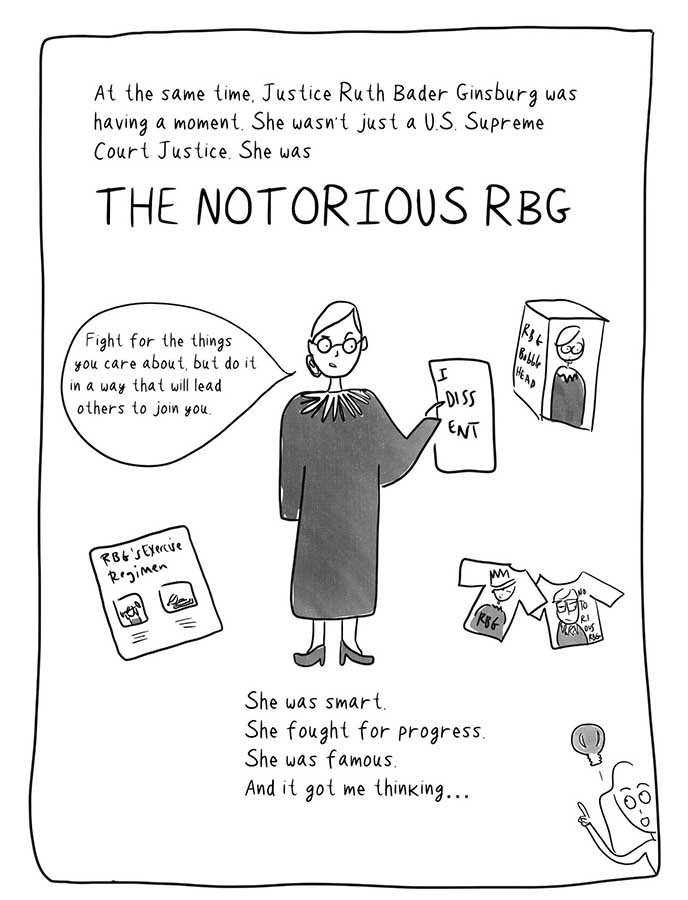 At the same time, Justice Ruth Bader Ginsburg was
having a moment. She wasn't just a U.S. Supreme
Court Justice. She was
THE NOTORIOUS RBG
Fight for the things
you care about, but do it
in a way that will lead
others to join you.
I
DISS
ENT
RBG
Bobble
HEAD
RBG's Exercise
Regimen
RBG
NO
TO
RI
OUS
RBG
She was smart.
She fought for progress.
She was famous.
And it got me thinking...